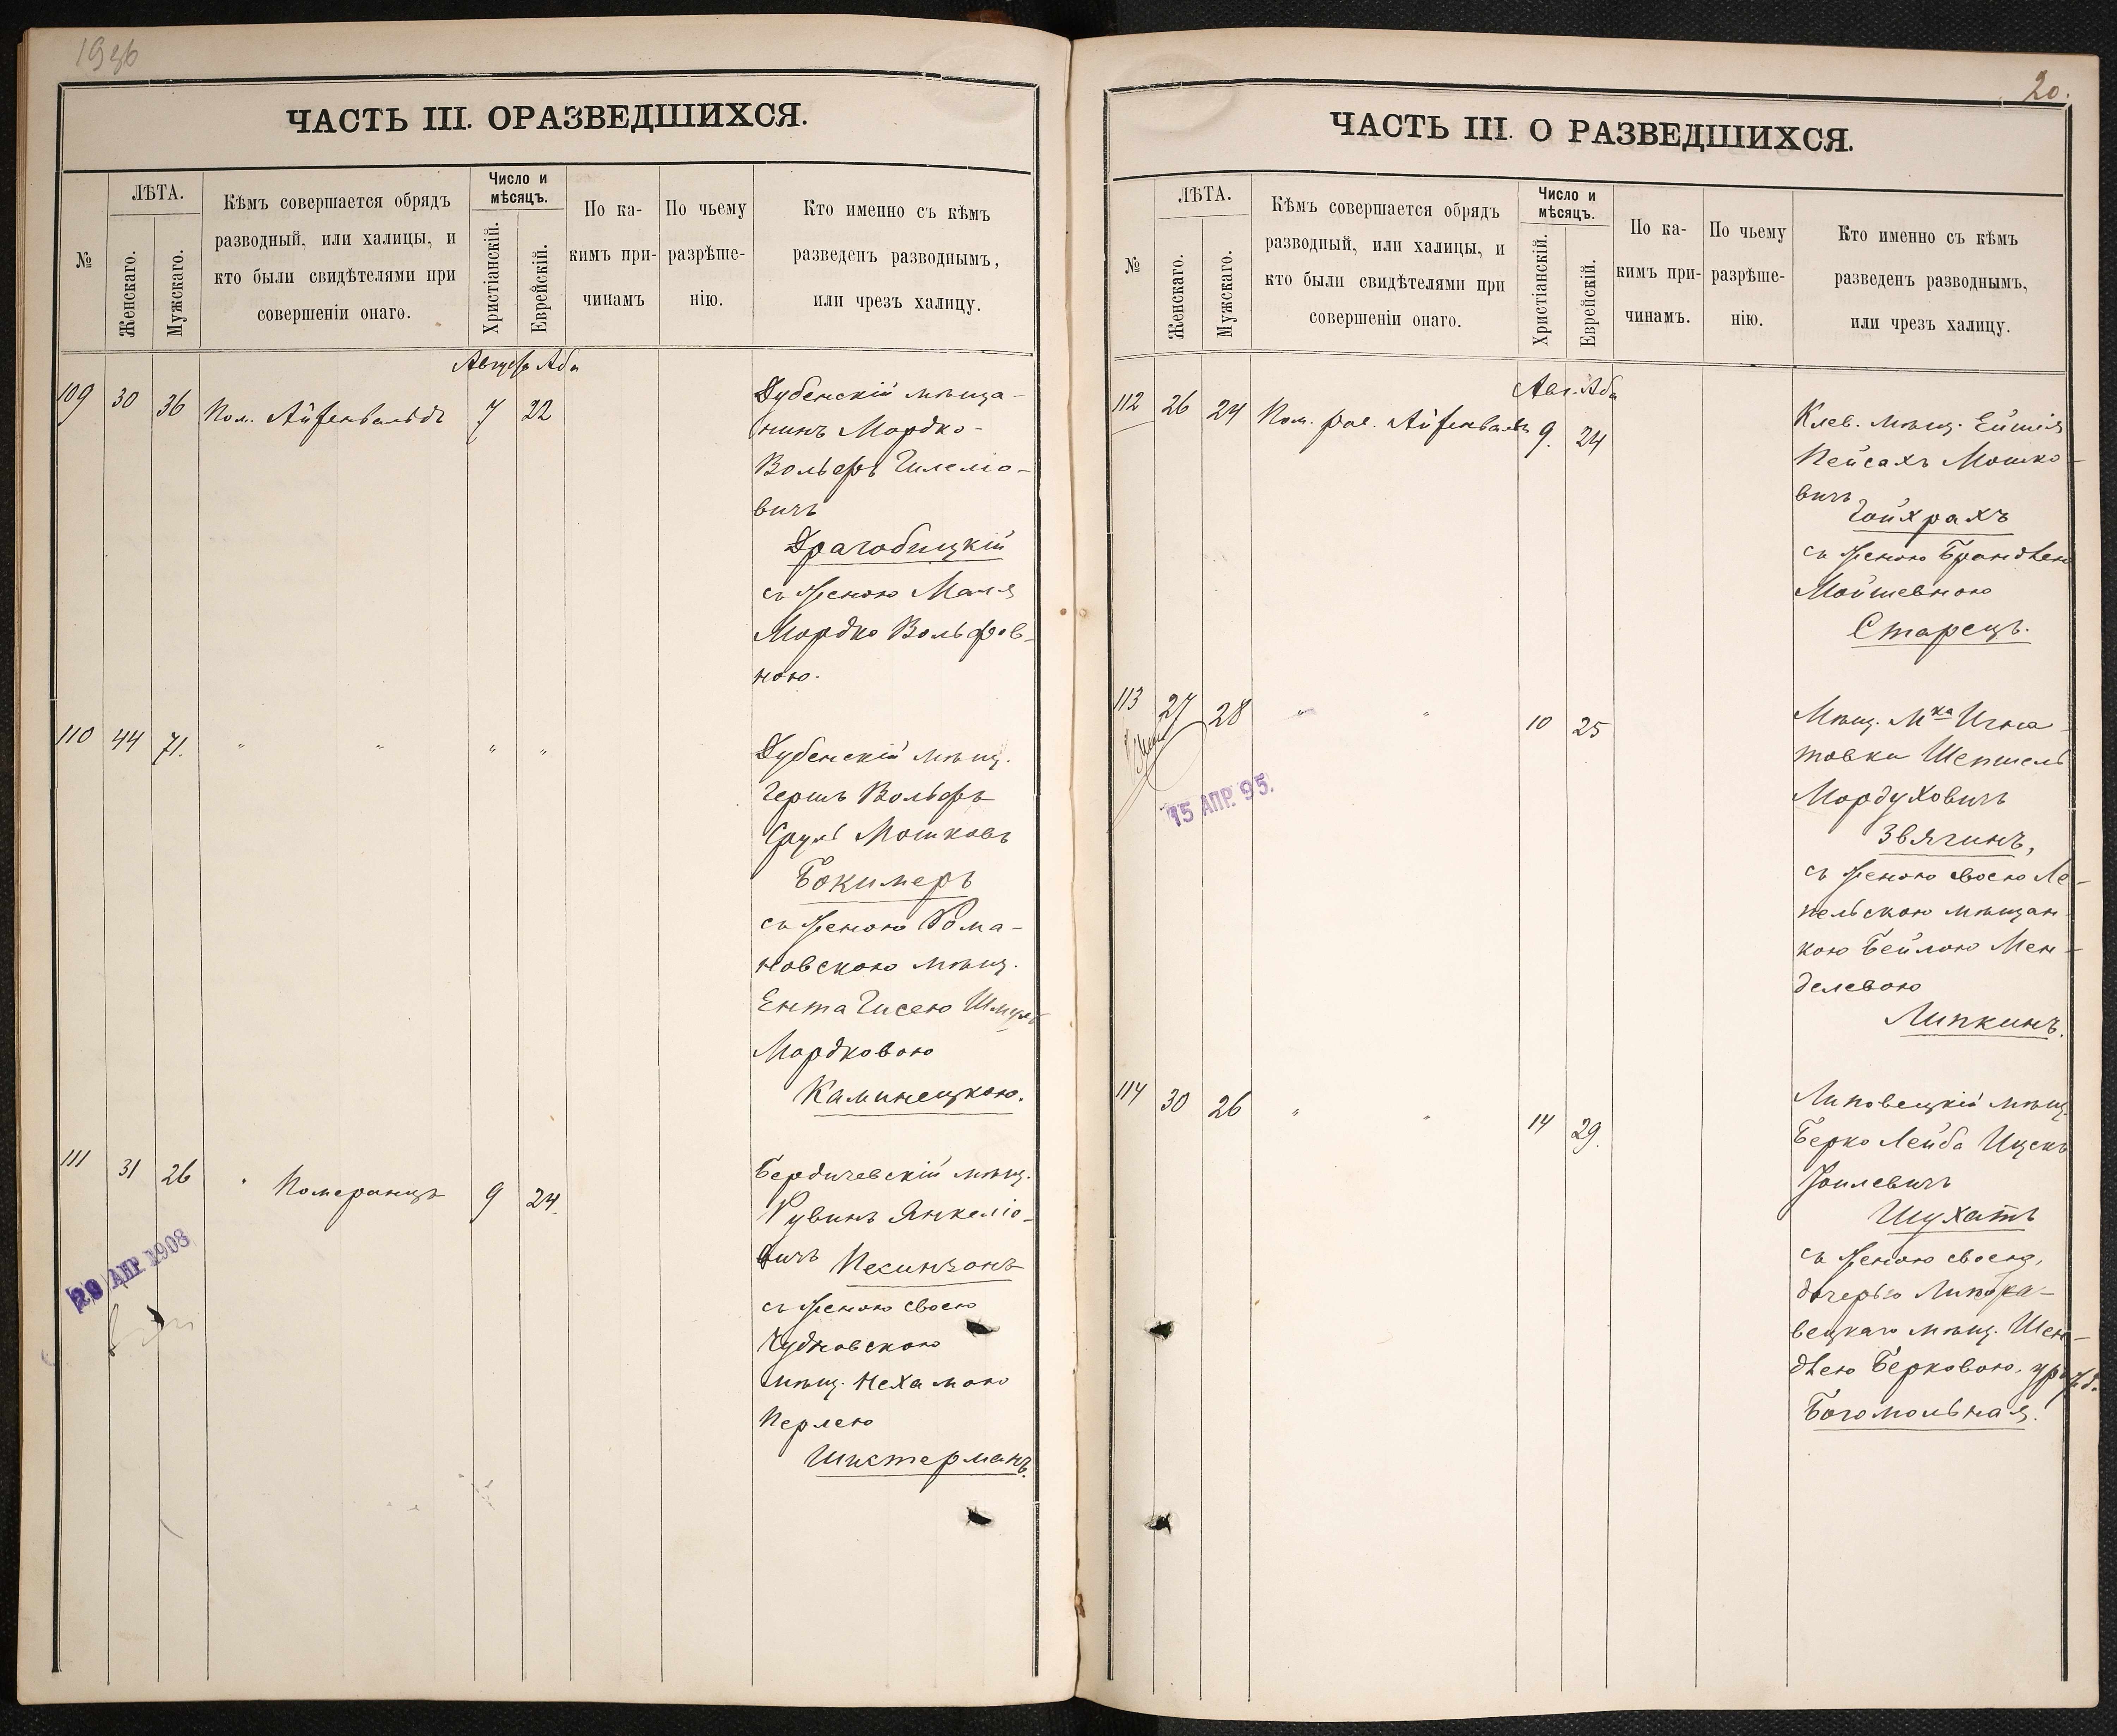 ЧАСТЬ III. ОРАЗВЕДШИХСЯ.
№
ЛѢТА.
Женскаго.
Мужскаго.
Кѣмъ совершается обрядъ
разводный, или халицы, и
кто были свидѣтелями при
совершеніи онаго.
Число и
мѣсяцъ.
Христіанскій.
Еврейскій.
По ка-
кимъ при-
чинамъ
По чьему
разрѣше-
нію.
Кто именно съ кѣмъ
разведенъ разводнымъ,
или чрезъ халицу.
Августъ Аба
109 30 36 Пом. Айзенвальдъ 7 22
Дубенскій мѣща-
нинъ Мордко-
Вольфъ
вичъ
Драгобицкій
съ женою Маля
Мордко Вольфов-
ною.
110 44 71. " " " "
Дубенскій мѣщ.
Гершъ Вольфъ
Сруль Мошковъ
Бокимеръ
съ женою Рома-
новскою мѣщ.
Ента Гисею Шмуль
Мордковою
Каминецкою.
111 31 26 " Померанцъ 9 24.
Бердичевскій мѣщ.
Рувинъ Янкеліо-
вичъ Песинзонъ
съ женою своею
Чудновскою
мѣщ. Нехамою
Перлею
Шистерманъ.
29 АПР 1908
20.
ЧАСТЬ III. О РАЗВЕДШИХСЯ.
№
ЛѢТА.
Женскаго.
Мужскаго.
Кѣмъ совершается обрядъ
разводный, или халицы, и
кто были свидѣтелями при
совершеніи онаго.
Число и
мѣсяцъ.
Христіанскій.
Еврейскій.
По ка-
кимъ при-
чинамъ.
По чьему
разрѣше-
нію.
Кто именно съ кѣмъ
разведенъ разводнымъ,
или чрезъ халицу.
Авг. Аба
112 26 24 Пом. рав. Айзенвальдъ 9. 24
Кіев. мѣщ.
Пейсахъ Мошко-
вичъ
Гойхрахъ
съ женою Брандлею
Мойшевною
Старецъ.
113 27 28 " " 10 25
Мѣщ. Мка Игна-
товки Шепшель
Мордуховичъ
Звягинъ,
съ женою своею Ле-
пельскою мѣщан-
кою Бейлою Мен-
делевою
Липкинъ.
15 АПР. 95.
114 30 26 " " 14 29.
Липовецкій мѣщ.
Берко Лейба Ицекъ
Фоилевичъ
Шухатъ
съ женою своею,
дочерью Липо-
вецкаго мѣщ. Шен-
длею Берковою, урожд.
Богомольная.